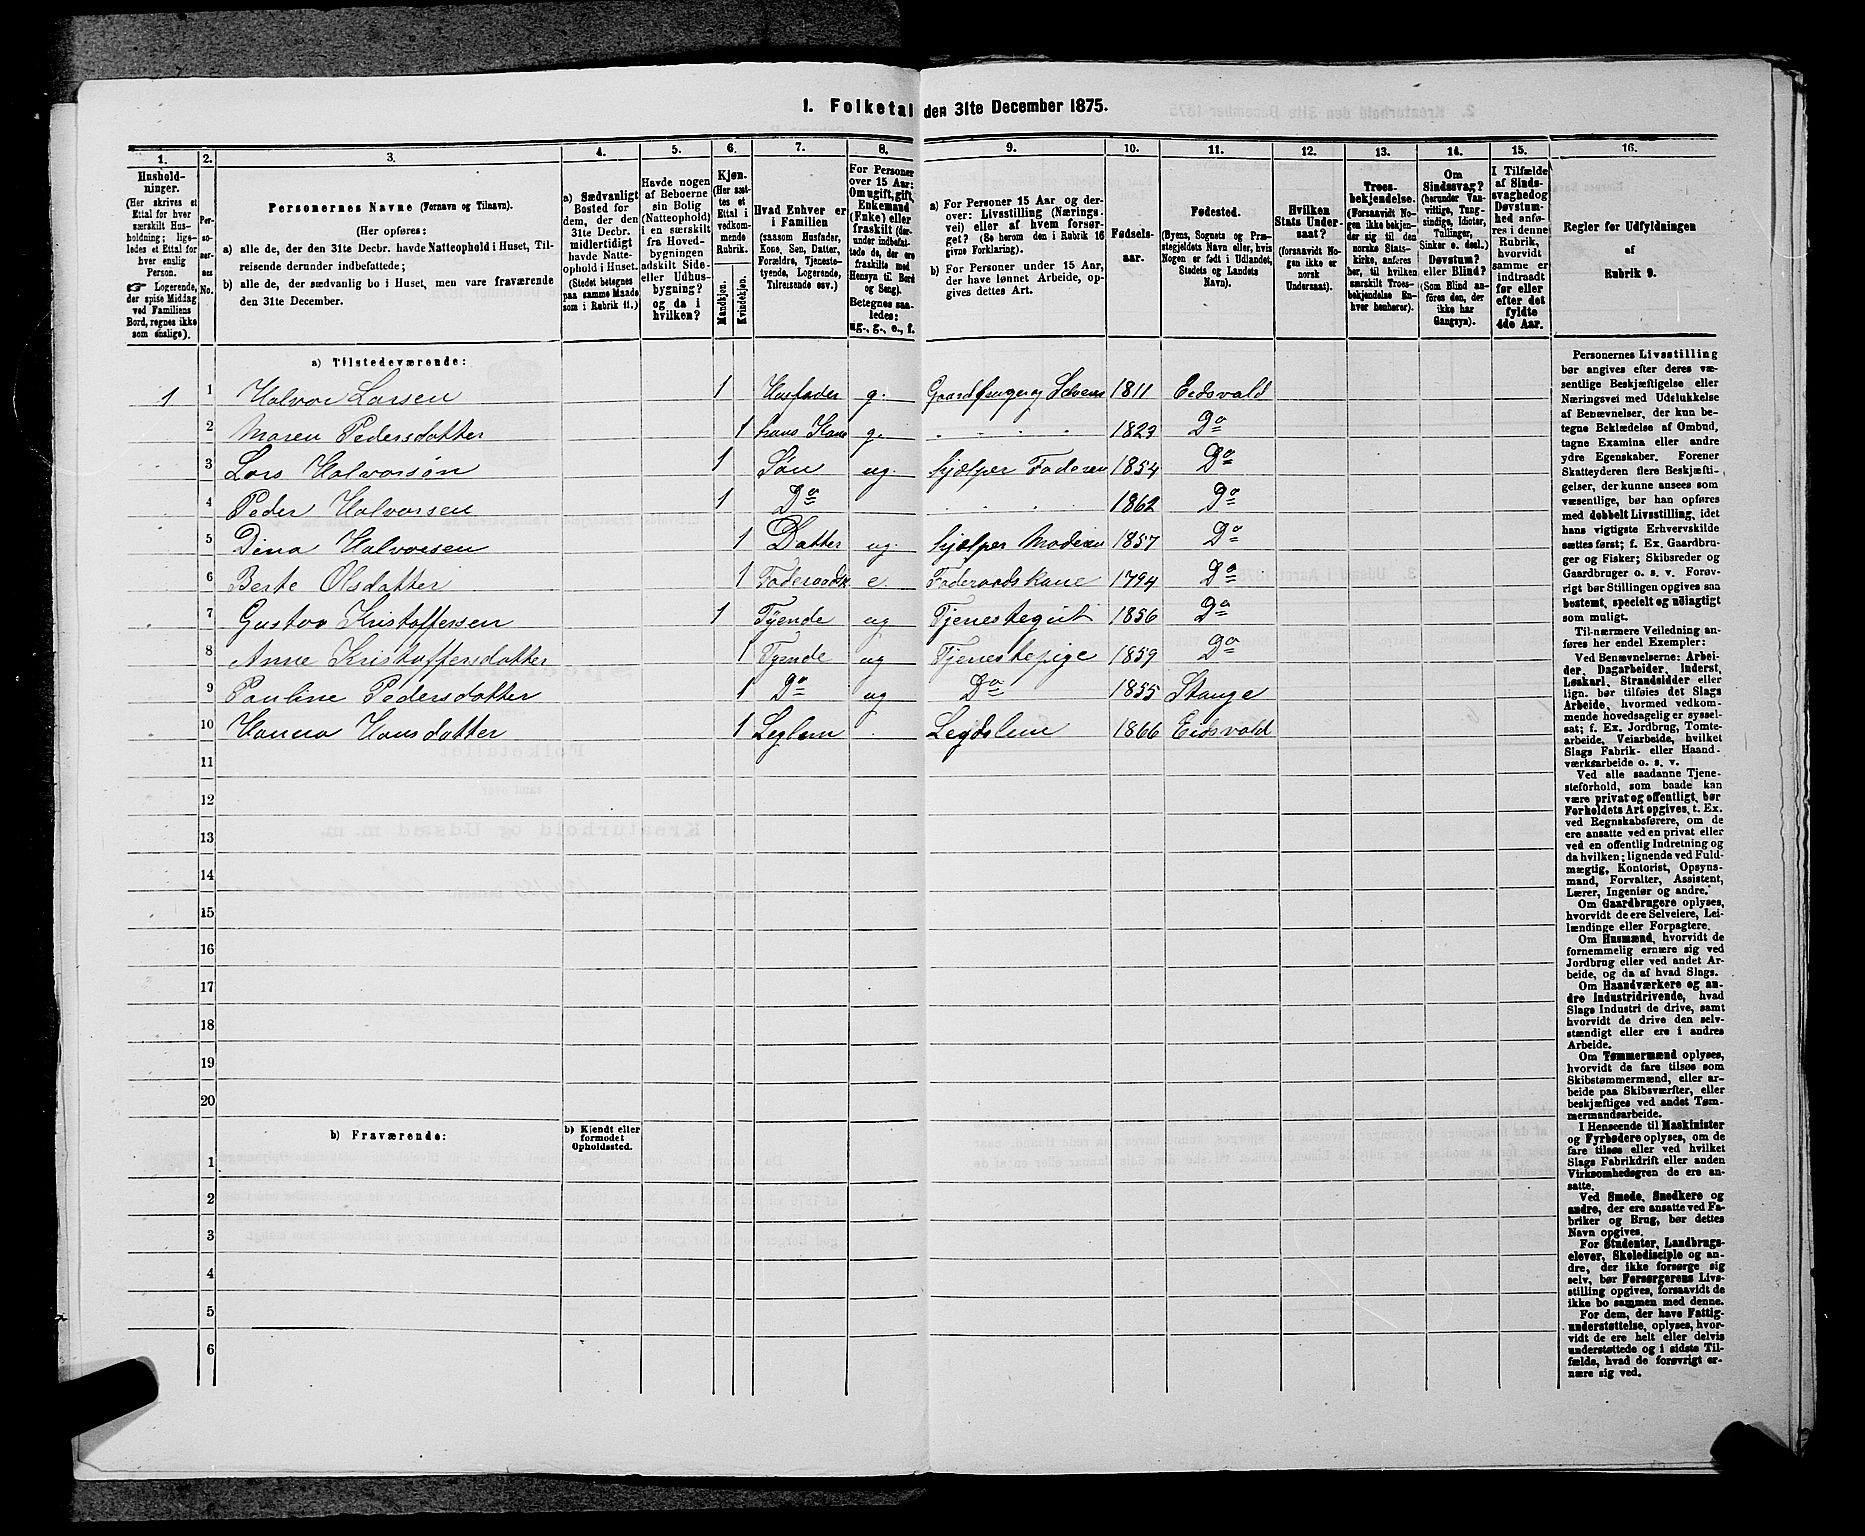 1. Folketal den 31te December 1875.
1.
2.
3.
4.
5.
6.
7.
8.
9.
10.
11.
12.
13.
14.
15.
16.
Hushold-
ninger.
(Her skrives et
Ettal for hver
særskilt Hus-
holdning; lige-
ledes et Ettal for
hver enslig
Person.
☞ Logerende,
der spise Middag
ved Familiens
Bord, regnes ikke
som enslige).
Per-
so-
ner-
nes
No.
Personernes Navne (Fornavn og Tilnavn).
(Her opføres:
a) alle de, der den 31te Decbr. havde Natteophold i Huset, Til-
reisende derunder indbefattede;
b) alle de, der sædvanlig bo i Huset, men vare fraværende
den 31te December.
a) Sædvanligt
Bosted for
dem, der den
31te Decbr.
midlertidigt
havde Natte-
ophold i Huset.
(Stedet betegnes
paa samme Maade
som i Rubrik 11.)
Havde nogen
af Beboerne
sin Bolig
(Natteophold)
i en særskilt
fra Hoved-
bygningen
adskilt Side-
eller Udhus-
bygning?
og da i
hvilken?
Kjøn.
(Her sæt-
tes et
Ettal i
vedkom-
mende
Rubrik.
Mandkjøn.
Kvindekjøn.
Hvad Enhver er
i Familien
(saasom Husfader,
Kone, Søn, Datter,
Forældre, Tjeneste-
tyende, Logerende,
Tilreisende osv.)
For Personer
over 15 Aar:
Om ugift, gift,
Enkemand
(Enke) eller
fraskilt (der-
under indbefat-
tede de, der ere
fraskilte med
Hensyn til Bord
og Seng).
Betegnes saa-
ledes:
ug., g., e., f.
a) For Personer 15 Aar og der-
over: Livsstilling (Nærings-
vei) eller af hvem forsør-
get? (Se herom den i Rubrik 16
givne Forklaring).
b) For Personer under 15 Aar,
der have lønnet Arbeide, op-
gives dettes Art.
Fødsels-
aar.
Fødested.
(Byens, Sognets og Præ-
stegjeldets Navn eller, hvis
Nogen er født i Udlandet,
Stedets og Landets
Navn).
Hvilken
Stats Under-
saat?
(forsaavidt No-
gen ikke er
norsk
Undersaat).
Troes-
bekjendelse.
(Forsaavidt No-
gen ikke bekjen-
der sig til den
norske Stats-
kirke, anføres
her, til hvilken
særskilt Troes-
bekjendelse En-
hver henhører).
Om
Sindssvag?
(herunder Van-
vittige, Tung-
sindige, Idioter,
Tullinger,
Sinker o. desl.)
Døvstum?
eller Blind?
(Som Blind an-
føres den, der
ikke har
Gangsyn).
I Tilfælde
af Sinds-
svaghed og
Døvstum-
hed anfø-
res i denne
Rubrik,
hvorvidt
samme er
indtraadt
før eller
efter det
fyldte
4de Aar.
Regler for Udfyldningen
af
Rubrik 9.
a) Tilstedeværende:
1 1 Halvor Larsen 1 Husfader g. 1811 Eidsvold
2 Maren Pedersdatter 1 hans Kone g. 1823 Do
3 Lars Halvorsøn 1 Søn ug. hjælper Faderen 1854 Do
4 Peder Halvorsen 1 Do 1862 Do
5 Dina Halvorsen 1 Datter ug. hjælper Moderen 1857 Do
6 Berte Olsdatter 1 e. Føderaadskone 1794 Do
7 Gustav Kristoffersen 1 Tyende ug Tjenestegut 1856 Do
8 Anne Kristoffersdatter 1 Tyende ug Tjenestepige 1859 Do
9 Pauline Pedersdatter 1 Do ug Do 1855 Stange
10 Hanna Hansdatter 1 Leglem Legdslem 1866 Eidsvold
11
12
13
14
15
16
17
18
19
20
b) Fraværende:
b) Kjendt eller
formodet
Opholdssted.
1
2
3
4
5
6
Personernes Livsstilling
bør angives efter deres væ-
sentlige Beskjæftigelse eller
Næringsvei med Udelukkelse
af Benævnelser, der kun be-
tegne Beklædelse af Ombud,
tagne Examina eller andre
ydre Egenskaber. Forener
Skatteyderen flere Beskjæfti-
gelser, der kunne ansees som
væsentlige, bør han opføres
med dobbelt Livsstilling, idet
hans vigtigste Erhvervskilde
sættes først; f. Ex. Gaardbru-
ger og Fisker; Skibsreder og
Gaardbruger o. s. v. Forøv-
rigt bør Stillingen opgives saa
bestemt, specielt og nøiagtigt
som muligt.
Til nærmere Veiledning an-
føres her endel Exempler:
Ved Benævnelserne: Arbei-
der, Dagarbeider, Inderst,
Løskarl, Strandsidder eller
lign. bør tilføies det Slags
Arbeide, hvormed vedkom-
mende hovedsagelig er syssel-
sat; f. Ex. Jordbrug, Tomte-
arbeide, Veiarbeide, hvilket
Slags Fabrik- eller Haand-
værksarbeide o. s. v.
Ved alle saadanne Tjene-
steforhold, som baade kan
være privat og offentligt, bør
Forholdets Art opgives, t. Ex.
ved Regnskabsførere, om de
ere ansatte ved en privat eller
ved en offentlig Indretning og
da hvilken; lignende ved Fuld-
mægtig, Kontorist, Opsyns-
mand, Forvalter, Assistent,
Lærer, Ingeniør og andre.
Om Gaardbrugere oplyses,
hvorvidt de ere Selveiere, Lei-
lændinge eller Forpagtere.
Om Husmænd, hvorvidt de
fornemmelig ernære sig ved
Jordbrug eller ved andet Ar-
beide, og da af hvad Slags.
Om Haandværkere og an-
dre Industridrivende, hvad
Slags Industri de drive, samt
hvorvidt de drive den selv-
stændigt eller ere i andres
Arbeide.
Om Tømmermænd oplyses,
hvorvidt de fare tilsøs som
Skibstømmermænd, eller ar-
beide paa Skibsværfter, eller
beskjæftiges ved andet Tøm-
mermandsarbeide.
I Henseende til Maskinister
og Fyrbødere oplyses, om de
fare tilsøs eller ved hvilket
Slags Fabrikdrift eller anden
Virksomhedsgren de ere an-
satte.
Ved Smede, Snedkere og
andre, der ere ansatte ved Fa-
briker og Brug, bør dettes
Navn opgives.
For Studenter, Landbrugs-
elever, Skoledisciple og an-
dre, der ikke forsørge sig
selv, bør Forsørgerens Livs-
stilling opgives, forsaavidt de
ikke bo sammen med denne.
For dem, der have Fattig-
understøttelse, oplyses, hvor-
vidt de ere helt eller delvis
understøttede og i sidste Til-
fælde, hvad de forøvrigt er-
nære sig ved.